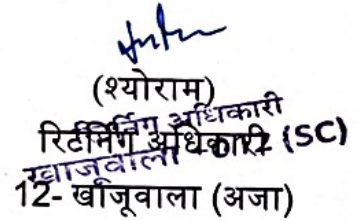 (श्योराम)
रिटर्निंग अधिकारी
रिटर्निंग अधिकारी
खाजूवाला - 012 (SC)
12- खाजूवाला (अजा)